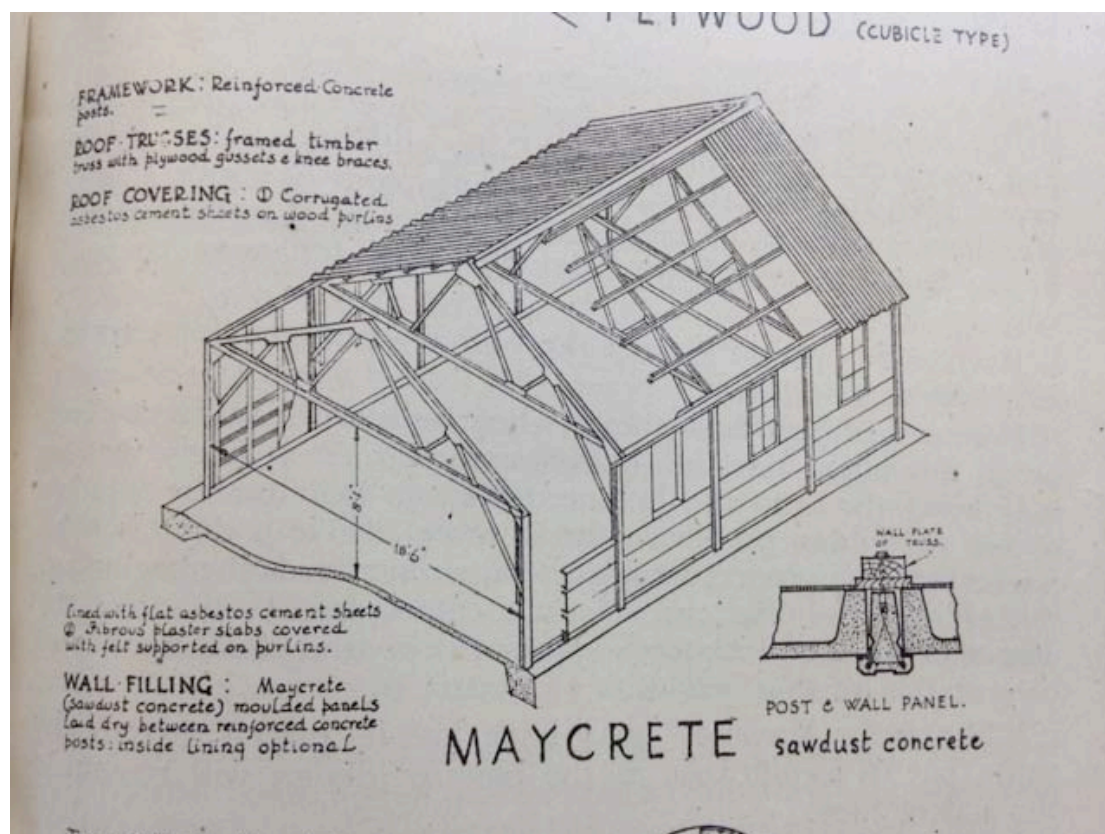 PLYWOOD (CUBICLE TYPE)
FRAMEWORK: Reinforced Concrete
posts.
ROOF TRUSSES: framed timber
truss with plywood gussets & knee braces.
ROOF COVERING: ① Corrugated
asbestos cement sheets on wood purlins
8'2"
18'6"
WALL PLATE
OF TRUSS.
lined with flat asbestos cement sheets
② Fibrous plaster slabs covered
with felt supported on purlins.
WALL FILLING: Maycrete
(sawdust concrete) moulded panels
laid dry between reinforced concrete
posts: inside lining optional.
POST & WALL PANEL.
MAYCRETE sawdust concrete